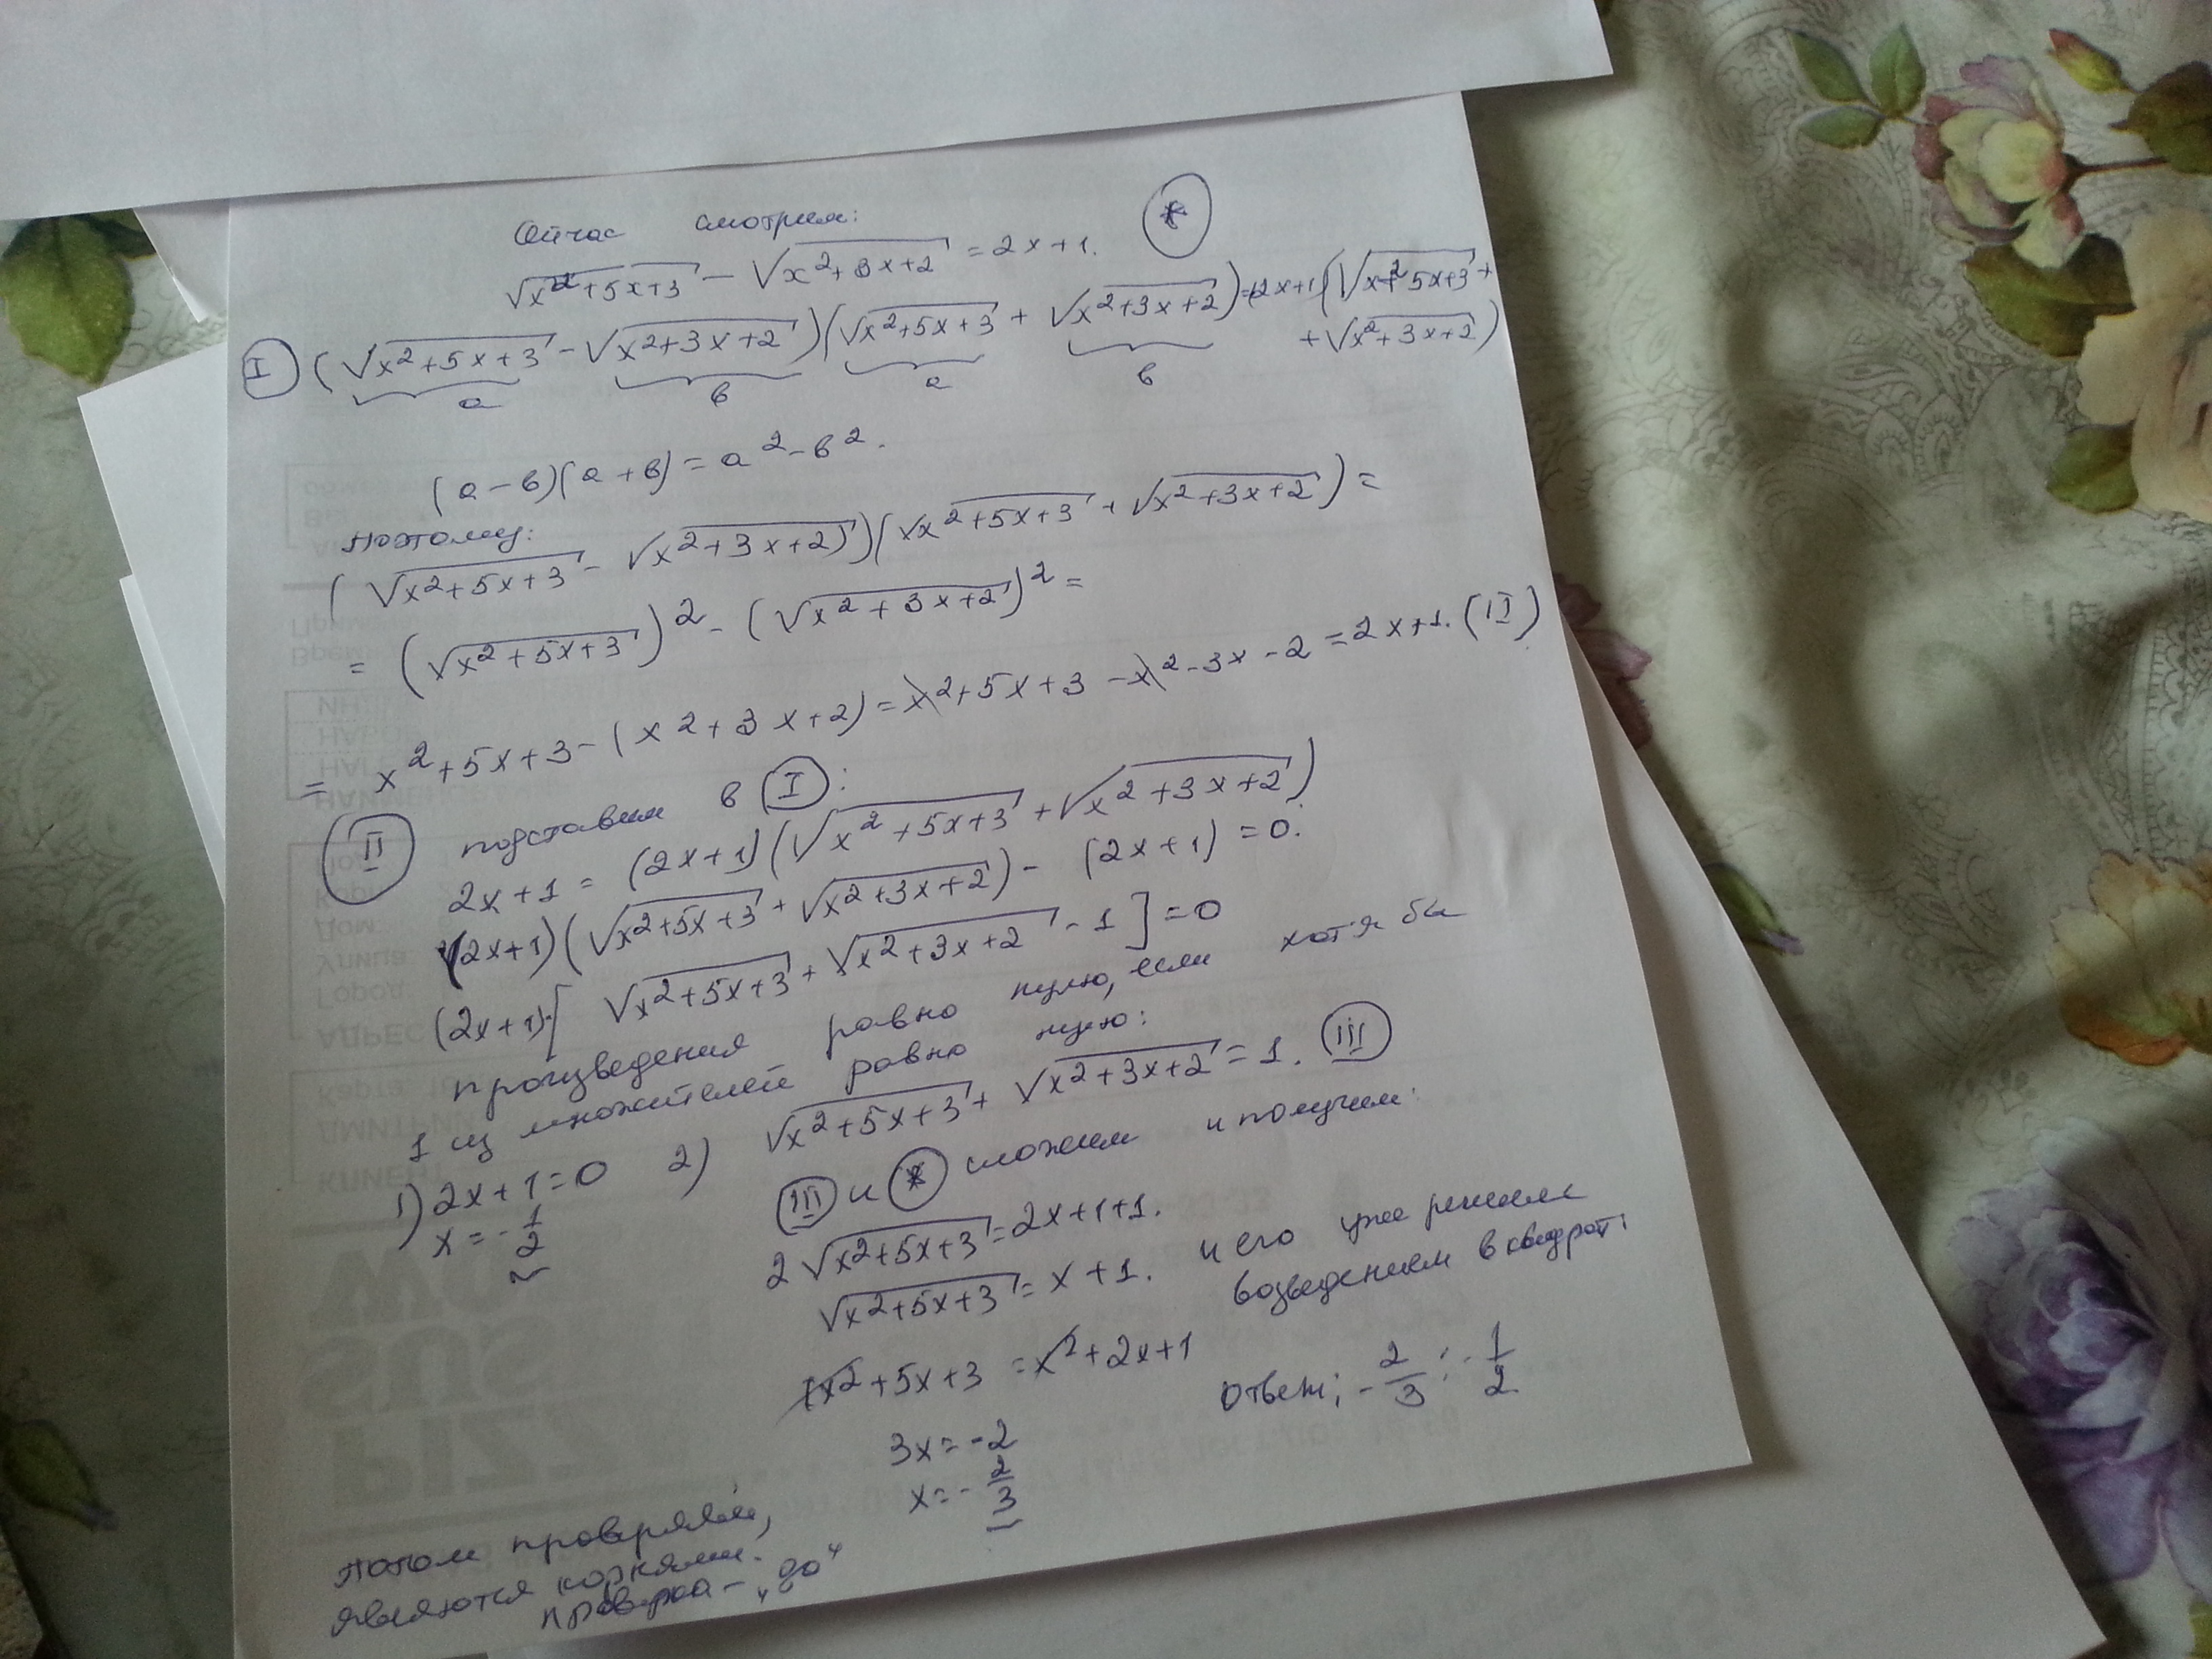 Сейчас смотрим:
√x²+5x+3 - √x²+3x+2 = 2x+1. *
I (√x²+5x+3 - √x²+3x+2)(√x²+5x+3 + √x²+3x+2)=(2x+1)(√x²+5x+3 +
+√x²+3x+2)
a в a в
(a-в)(a+в)=a²-в².
Поэтому:
(√x²+5x+3 - √x²+3x+2)(√x²+5x+3 + √x²+3x+2)=
=(√x²+5x+3)²-(√x²+3x+2)²=
= x²+5x+3-(x²+3x+2)=x²+5x+3-x²-3x-2=2x+1. (II)
II подставим в I:
2x+1=(2x+1)(√x²+5x+3 + √x²+3x+2)
(2x+1)(√x²+5x+3 + √x²+3x+2)-(2x+1)=0.
(2x+1)·[√x²+5x+3 + √x²+3x+2 - 1]=0
произведения равно нулю, если хотя бы
1 из множителей равно нулю:
1) 2x+1=0 2) √x²+5x+3 + √x²+3x+2 = 1. III
x=-1/2
III и * сложим и получим:
2√x²+5x+3=2x+1+1.
√x²+5x+3=x+1. и его уже решаем
возведением в квадрат:
x²+5x+3=x²+2x+1
3x=-2
x=-2/3
Ответ: -2/3; -1/2
потом проверяем,
являются корнями.
проверка - "до"